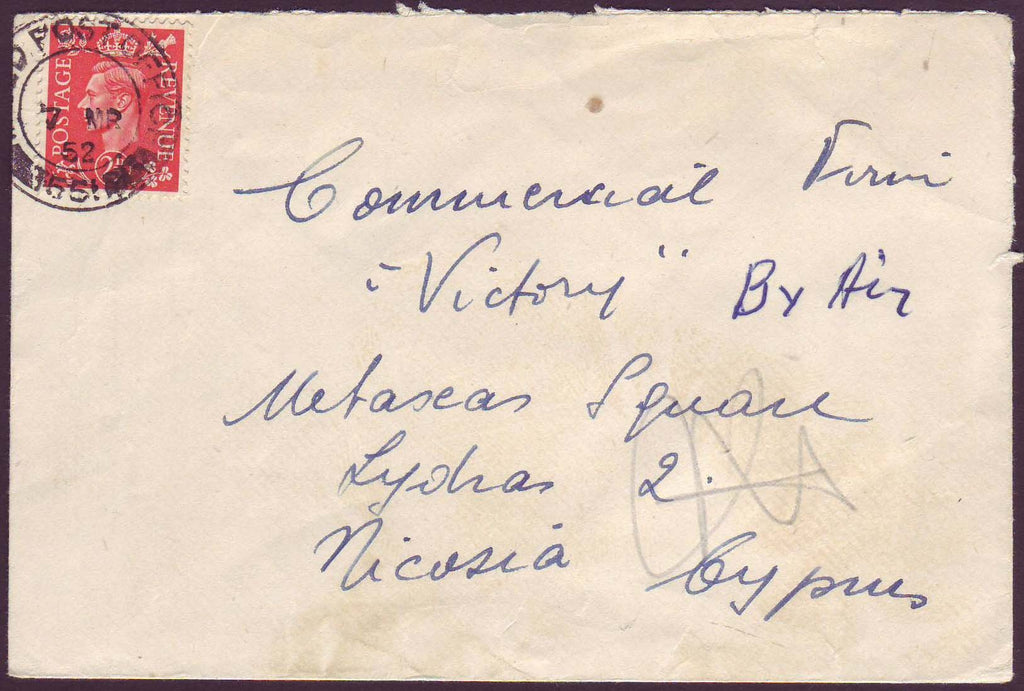 FIELD POST OFFICE
7 MR
52
POSTAGE REVENUE
2D
Commercial Firm
"Victory" By Air
Metaxas Square
Lydras 2.
Nicosia Cyprus